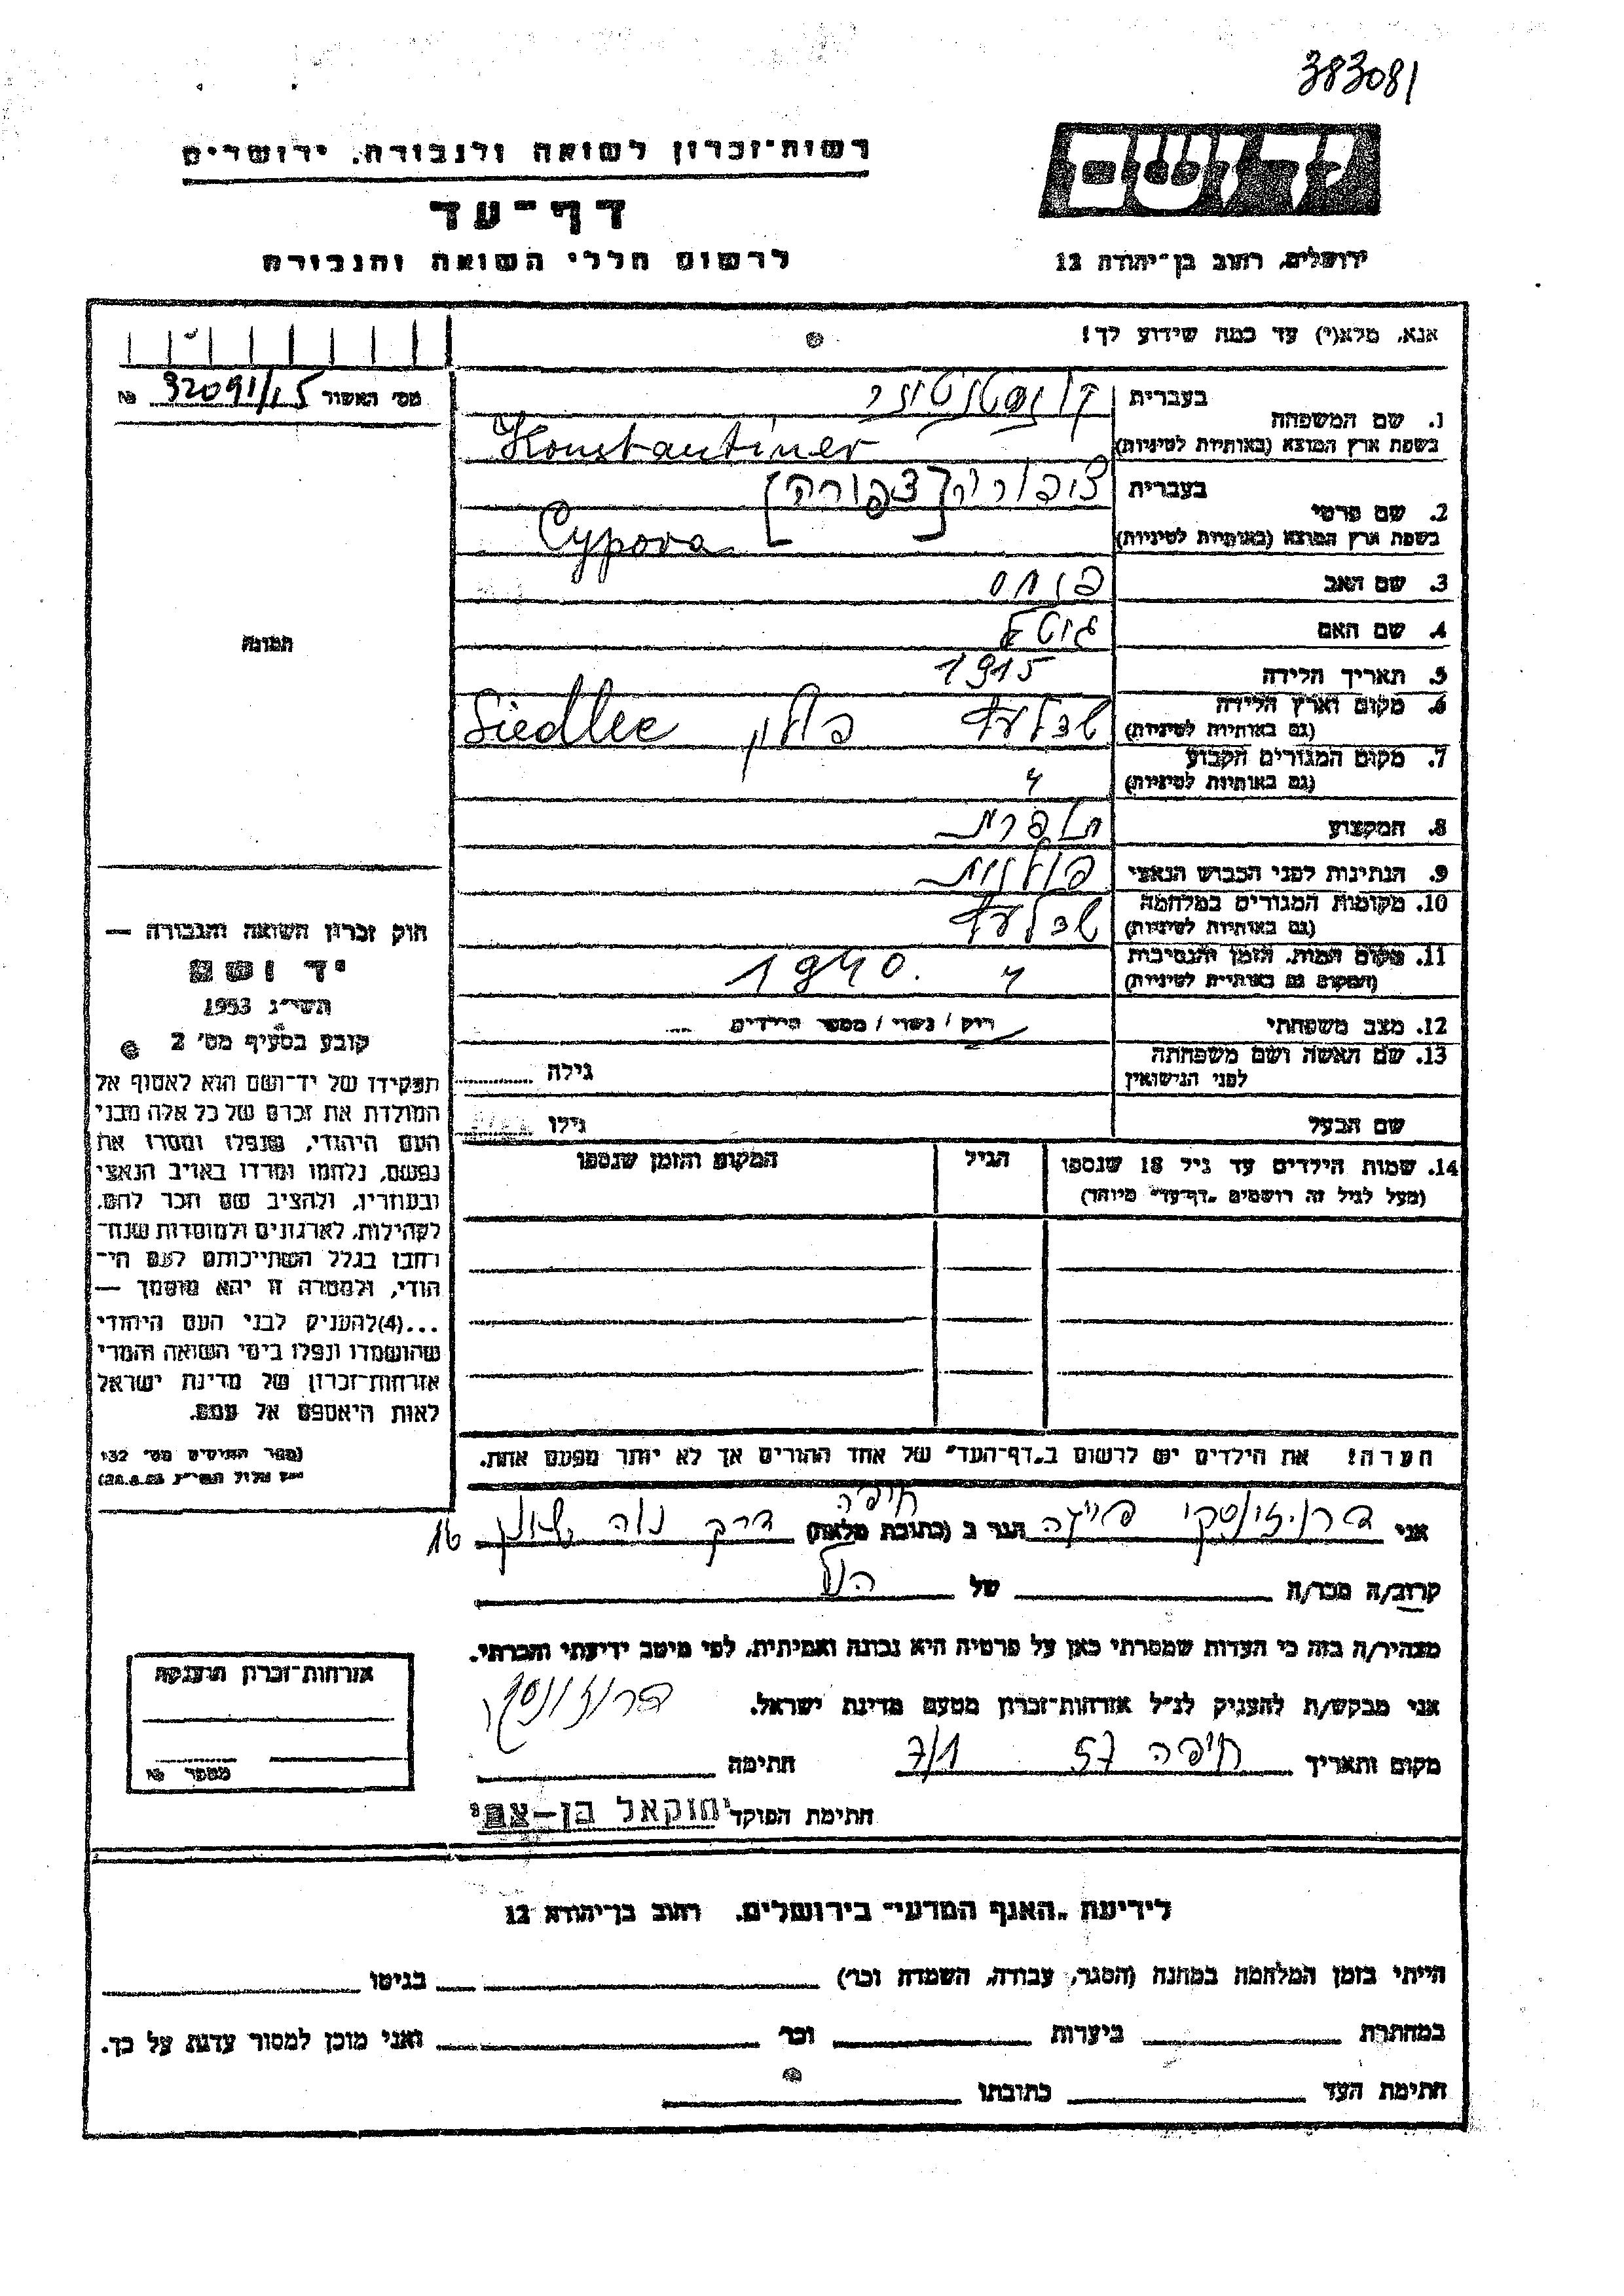 383081
רשות־זכרון לשואה ולגבורה, ירושלים
יד ושם
דף־עד
לרשום חללי השואה והגבורה
ירושלים, רחוב בן־יהודה 12
אנא, מלא(י) עד כמה שידוע לך!
מס׳ האשור 32091/15 №
1. שם המשפחה
בעברית
בשפת ארץ המוצא (באותיות לטיניות) Konstantiner
2. שם פרטי
בעברית ציפוריה [צפורה]
בשפת ארץ המוצא (באותיות לטיניות) Cypora
3. שם האב פנחס
4. שם האם גיטל
5. תאריך הלידה 1915
6. מקום וארץ הלידה שדלעץ פולין Siedlce
(גם באותיות לטיניות)
7. מקום המגורים הקבוע
(גם באותיות לטיניות) "
8. המקצוע תופרת
9. הנתינות לפני הכבוש הנאצי פולנית
10. מקומות המגורים במלחמה שדלעץ
(גם באותיות לטיניות)
11. מקום המות, הזמן והנסיבות " 1940.
(המקום גם באותיות לטיניות)
12. מצב משפחתי רווק / נשוי / מספר הילדים
13. שם האשה ושם משפחתה
לפני הנישואין
גילה
שם הבעל גילו
14. שמות הילדים עד גיל 18 שנספו
(מעל לגיל זה רושמים „דף־עד" מיוחד)
הגיל
המקום והזמן שנספו
הערה! את הילדים יש לרשום ב„דף־העד" של אחד ההורים אך לא יותר מפעם אחת.
תמונה
חוק זכרון השואה והגבורה —
יד ושם
תשי״ג 1953
קובע בסעיף מס׳ 2
תפקידו של יד־ושם הוא לאסוף אל
המולדת את זכרם של כל אלה מבני
העם היהודי, שנפלו ומסרו את
נפשם, נלחמו ומרדו באויב הנאצי
ובעוזריו, ולהציב שם וזכר להם,
לקהילות, לארגונים ולמוסדות שנח־
רבו בגלל השתייכותם לעם הי־
הודי, ולמטרה זו יהא מוסמך —
...(4)להעניק לבני העם היהודי
שהושמדו ונפלו בימי השואה והמרי
אזרחות־זכרון של מדינת ישראל
לאות היאספם אל עמם.
(ספר החוקים מס׳ 132
י״ז אלול תשי״ג 28.8.53)
אני הגר ב (כתובת מלאה) חיפה דרך נוה שאנן 16
קרוב/ה מכר/ה של הנ״ל
מצהיר/ה בזה כי העדות שמסרתי כאן על פרטיה היא נכונה ואמיתית, לפי מיטב ידיעתי והכרתי.
אני מבקש/ת להעניק לנ״ל אזרחות־זכרון מטעם מדינת ישראל.
מקום ותאריך חיפה 57 7/1 חתימה
חתימת הפוקד יחזקאל בן-צבי
אזרחות־זכרון הוענקה
מספר №
לידיעת „האגף המדעי" בירושלים. רחוב בן־יהודא 12
הייתי בזמן המלחמה במחנה (הסגר, עבודה, השמדה וכו׳) בגיטו
במחתרת ביערות וכו׳ ואני מוכן למסור עדות על כך.
חתימת העד כתובתו